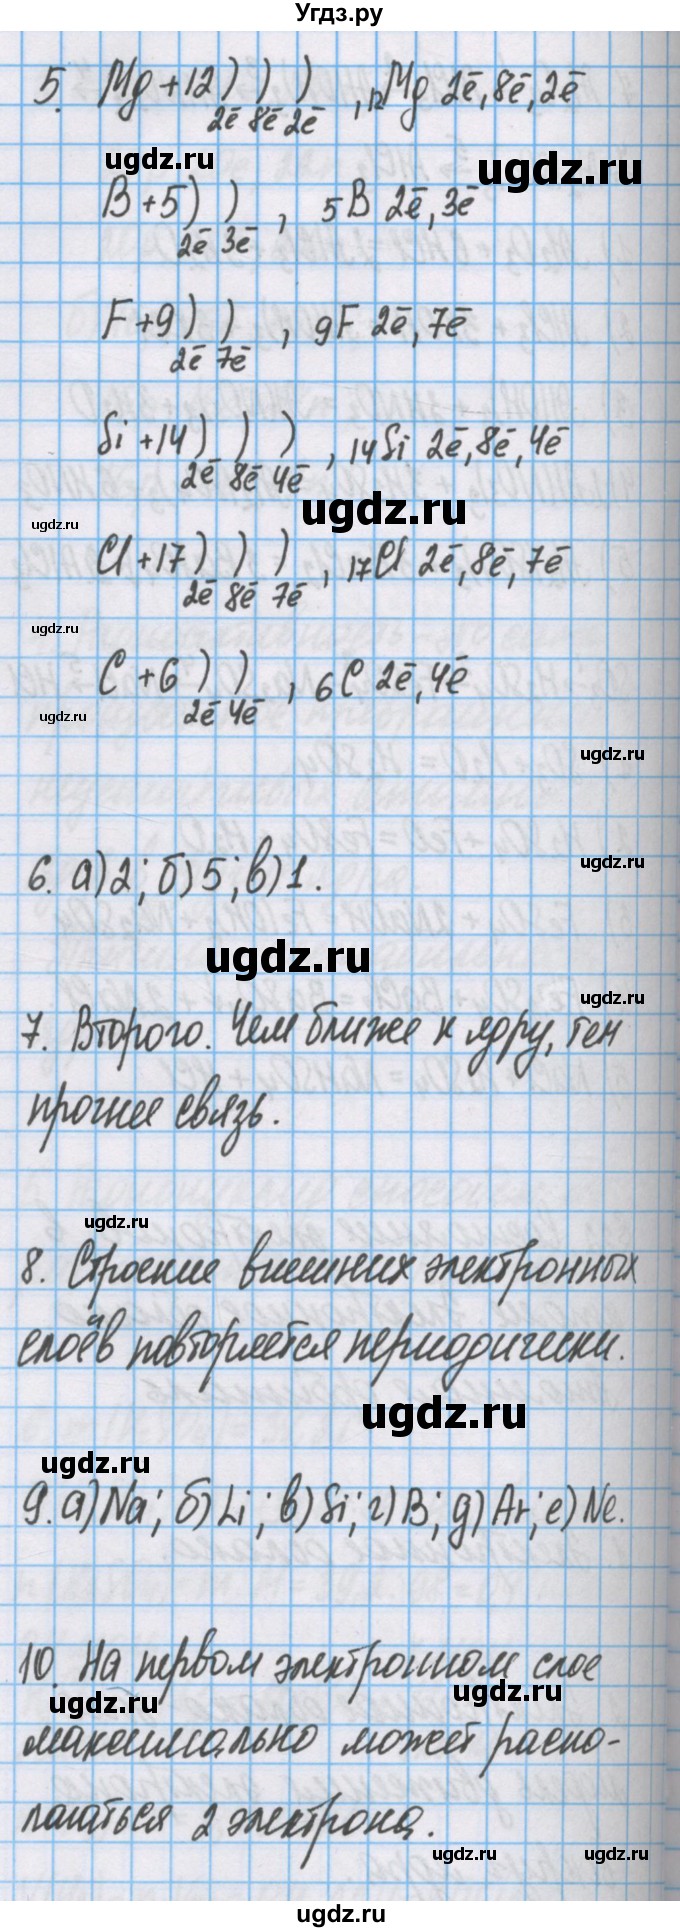 Угдз.ру
5. Mg +12) ) ) , 12Mg 2ē, 8ē, 2ē
2ē 8ē 2ē
ugdz.ru
ugdz.ru
B +5) ) , 5B 2ē, 3ē
2ē 3ē
F +9) ) , 9F 2ē, 7ē
2ē 7ē
Si +14) ) ) , 14Si 2ē, 8ē, 4ē
2ē 8ē 4ē
ugdz.ru
ugdz.ru
Cl +17) ) ) , 17Cl 2ē, 8ē, 7ē
2ē 8ē 7ē
ugdz.ru
C +6) ) , 6C 2ē, 4ē
2ē 4ē
ugdz.ru
ugdz.ru
6. а) 2; б) 5; в) 1.
ugdz.ru
ugdz.ru
ugdz.ru
7. Второго. Чем ближе к ядру, тем
прочнее связь.
ugdz.ru
8. Строение внешних электронных
слоёв повторяется периодически.
ugdz.ru
ugdz.ru
9. а) Na; б) Li; в) Si; г) B; д) Ar; е) Ne.
10. На первом электронном слое
ugdz.ru
ugdz.ru
максимально может распо-
лагаться 2 электрона.
ugdz.ru
ugdz.ru
ugdz.ru